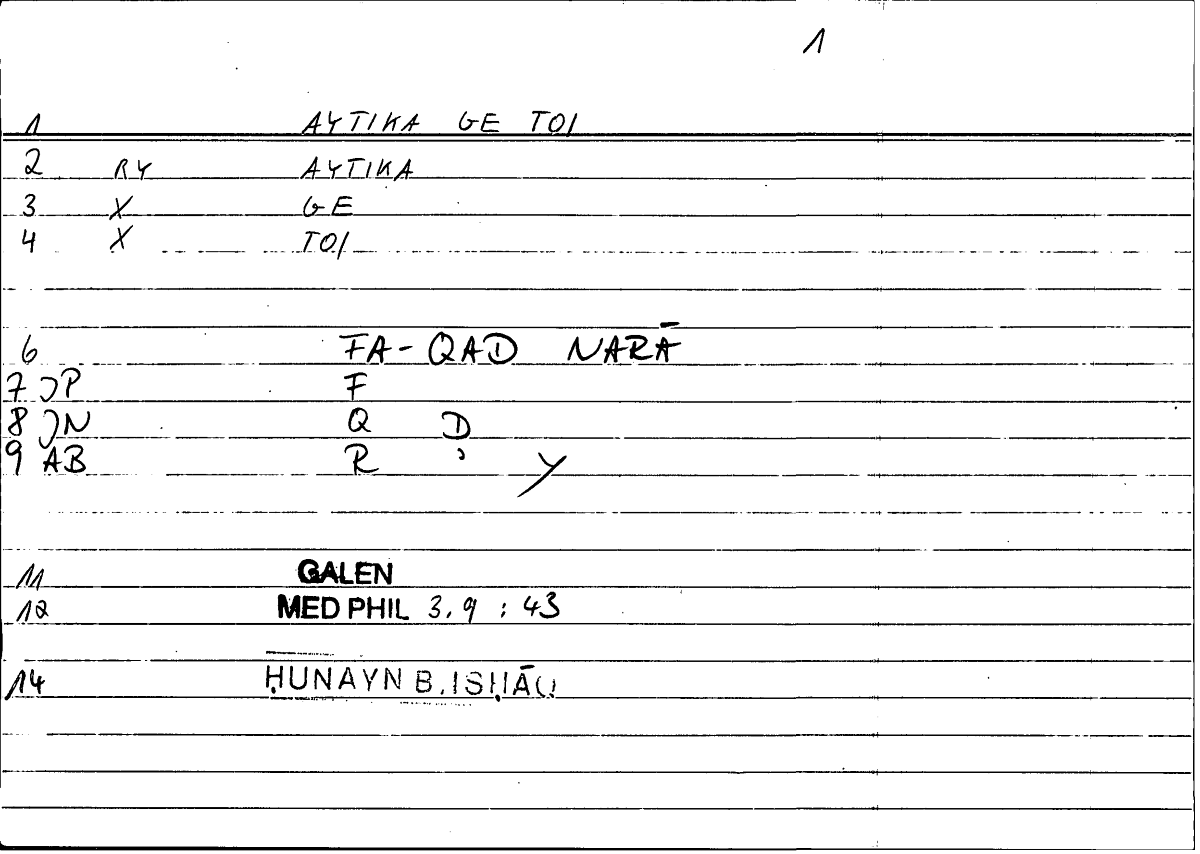 1
1 AYTIKA GE TOI
2 RY AYTIKA
3 X GE
4 X TOI
6 FA-QAD NARĀ
7 JP F
8 JN Q D
9 AB R ʾ Y
11 GALEN
12 MED PHIL 3.9 : 43
14 ḤUNAYN B. ISḤĀQ